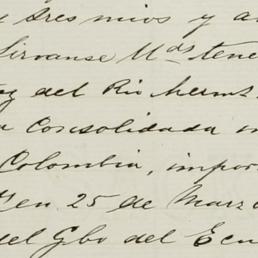 y tres mios y a
Sirvanse Uds tene
del Rio
Consolidada
Colombia, impor
en 25 de Marz
del Gbo del Ecu